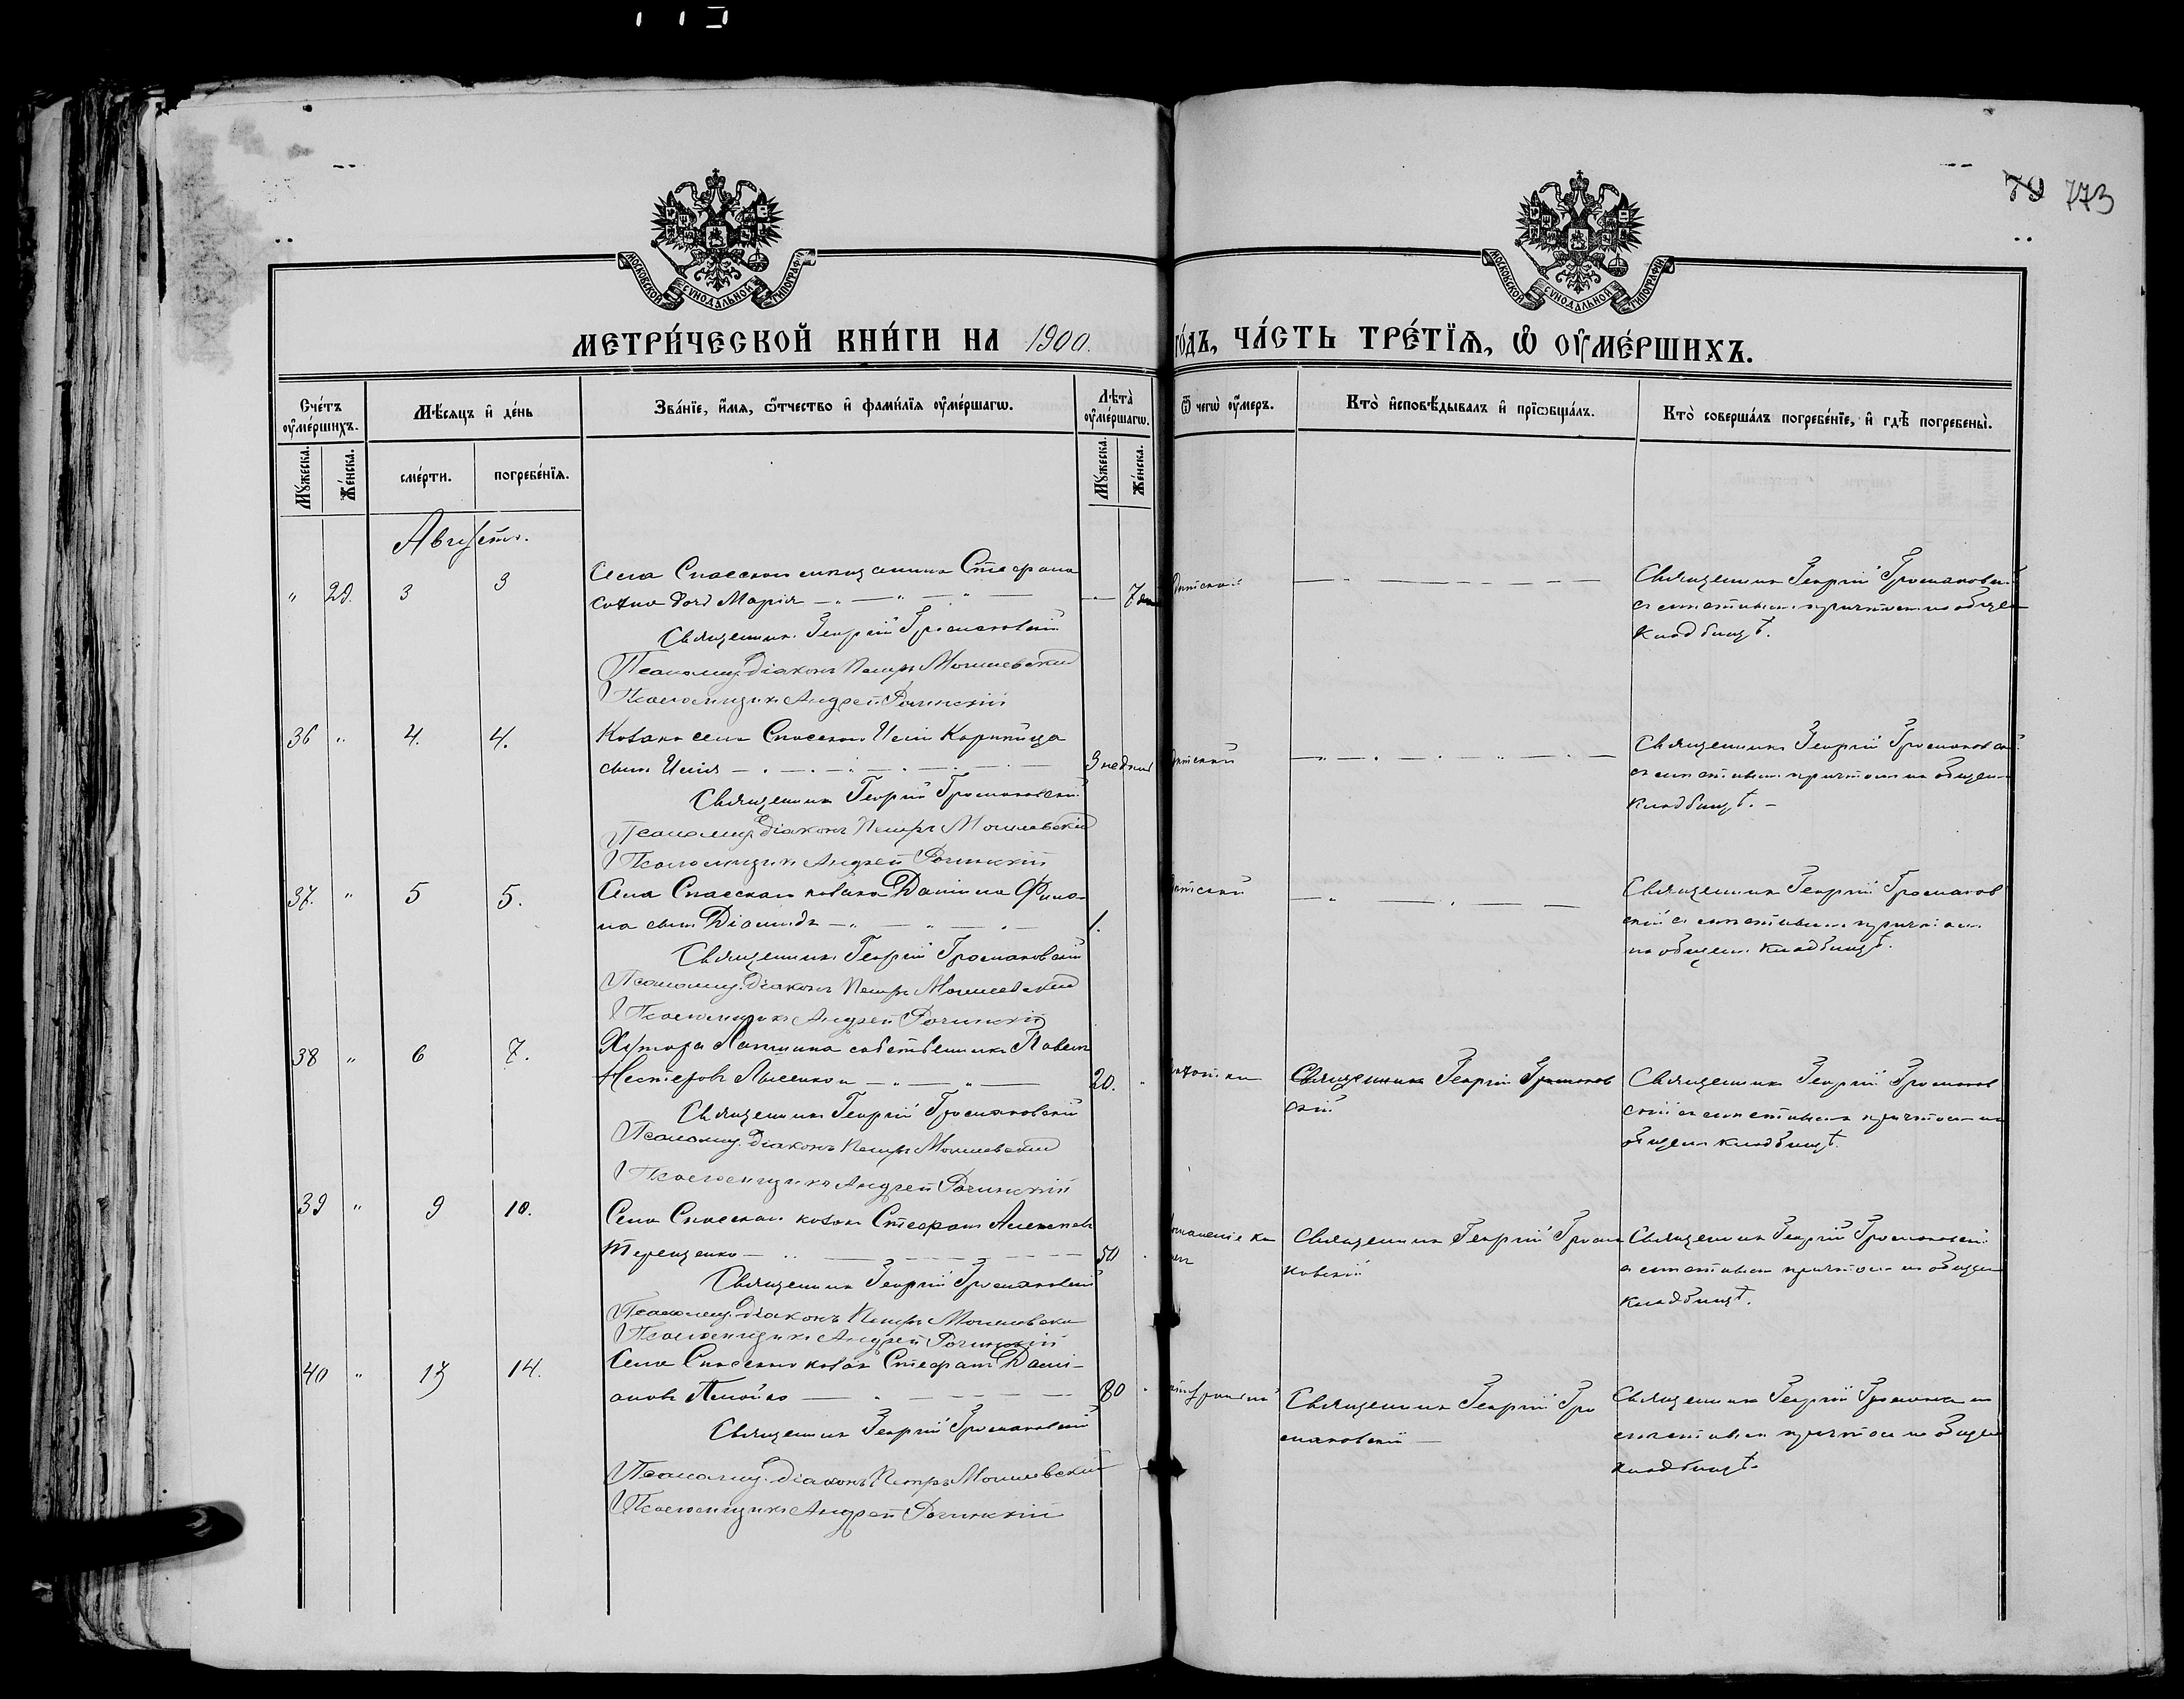 79 773
МОСКОВСКОЙ СѴНОДАЛЬНОЙ ТИПОГРАФІИ
МОСКОВСКОЙ СѴНОДАЛЬНОЙ ТИПОГРАФІИ
МЕТРИ́ЧЕСКОЙ КНИ́ГИ НА 1900.
го́дъ, ЧА́СТЬ ТРЕ́ТЇѦ, Ѽ ОУ҆МЕ́РШИХЪ.
Сче́тъ оу҆ме́ршихъ.
Мꙋ́жеска.
Же́нска.
Мѣ́сѧцъ и҆ де́нь
сме́рти.
погребе́нїѧ.
Зва́нїе, и҆́мѧ, ѻ҆́тчество и҆ фами́лїѧ оу҆ме́ршагѡ.
Лѣ̑та оу҆ме́ршагѡ.
Мꙋ́жеска.
Же́нска.
Ѿ чегѡ̀ оу҆́меръ.
Кто̀ и҆сповѣ́дывалъ и҆ прїѡбща́лъ.
Кто̀ соверша́лъ погребе́нїе, и҆ гдѣ̀ погребены̀.
Августъ.
" 29. 3 3
Села Спасскаго мещанина Стефана
дочь Марія
7 дн
Священникъ Георгій Громаковскій
Псаломщ. діаконъ Петръ Могилевскій
Псаломщикъ Андрей Рачинскій
Священникъ Георгій Громаковскій
съ мѣстнымъ причтомъ на общемъ
кладбищѣ.
36 " 4. 4.
Козака села Спасскаго
сынъ Илія
3 недѣли
Священникъ Георгій Громаковскій
Псаломщ. діаконъ Петръ Могилевскій
Псаломщикъ Андрей Рачинскій
Священникъ Георгій Громаковскій
съ мѣстнымъ причтомъ на общемъ
кладбищѣ.
37. " 5 5.
Села Спасскаго козака Даніила Фило-
на сынъ Діомидъ
1.
Священникъ Георгій Громаковскій
Псаломщ. діаконъ Петръ Могилевскій
Псаломщикъ Андрей Рачинскій
Священникъ Георгій Громаков
скій съ мѣстнымъ причтомъ
на общемъ кладбищѣ.
38 " 6 7.
Хутора Лапшина собственникъ Павелъ
Нестеровъ Лысенко
20. "
Священникъ Георгій Громаковскій
Псаломщ. діаконъ Петръ Могилевскій
Псаломщикъ Андрей Рачинскій
Священникъ Георгій Громаков
скій
Священникъ Георгій Громаков
скій съ мѣстнымъ причтомъ на
общемъ кладбищѣ.
39 " 9 10.
Села Спасскаго козакъ Стефанъ Алексѣевъ
Терещенко
50
Священникъ Георгій Громаковскій
Псаломщ. діаконъ Петръ Могилевскій
Псаломщикъ Андрей Рачинскій
Священникъ Георгій Грома
ковскій
Священникъ Георгій Громаковскій
съ мѣстнымъ причтомъ на общемъ
кладбищѣ.
40 " 13 14.
Села Спасскаго козакъ Стефанъ Дамі-
ановъ
80
Священникъ Георгій Громаковскій
Псаломщ. діаконъ Петръ Могилевскій
Псаломщикъ Андрей Рачинскій
Священникъ Георгій Гро
маковскій
Священникъ Георгій
мѣстнымъ причтомъ на общемъ
кладбищѣ.